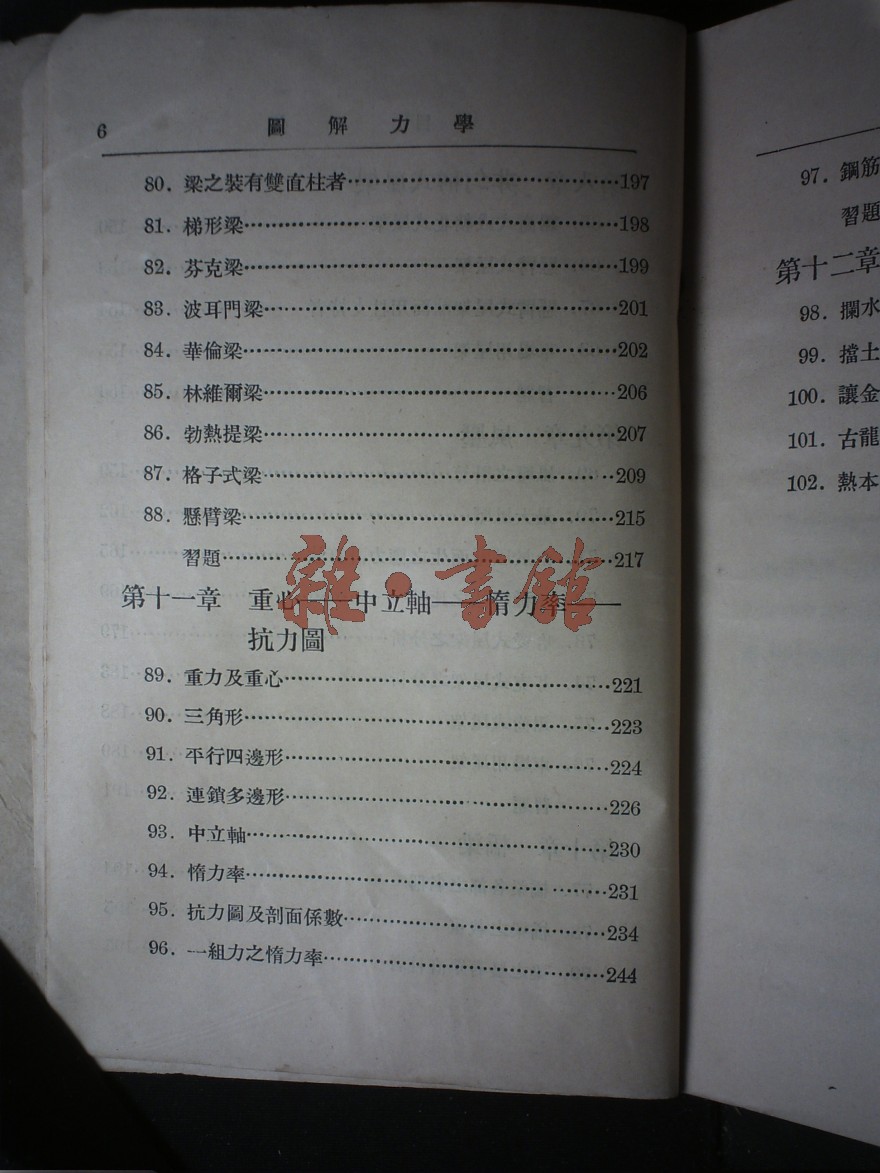 6 圖解力學
80. 梁之裝有雙直柱者……197
81. 梯形梁……198
82. 芬克梁……199
83. 波耳門梁……201
84. 華倫梁……202
85. 林維爾梁……206
86. 勃熱提梁……207
87. 格子式梁……209
88. 懸臂梁……215
習題……217
第十一章 重心——中立軸——惰力率——
抗力圖
89. 重力及重心……221
90. 三角形……223
91. 平行四邊形……224
92. 連鎖多邊形……226
93. 中立軸……230
94. 惰力率……231
95. 抗力圖及剖面係數……234
96. 一組力之惰力率……244
雜·書館
97. 鋼筋
習題
第十二章
98. 攔水
99. 擋土
100. 讓金
101. 古龍
102. 熱本